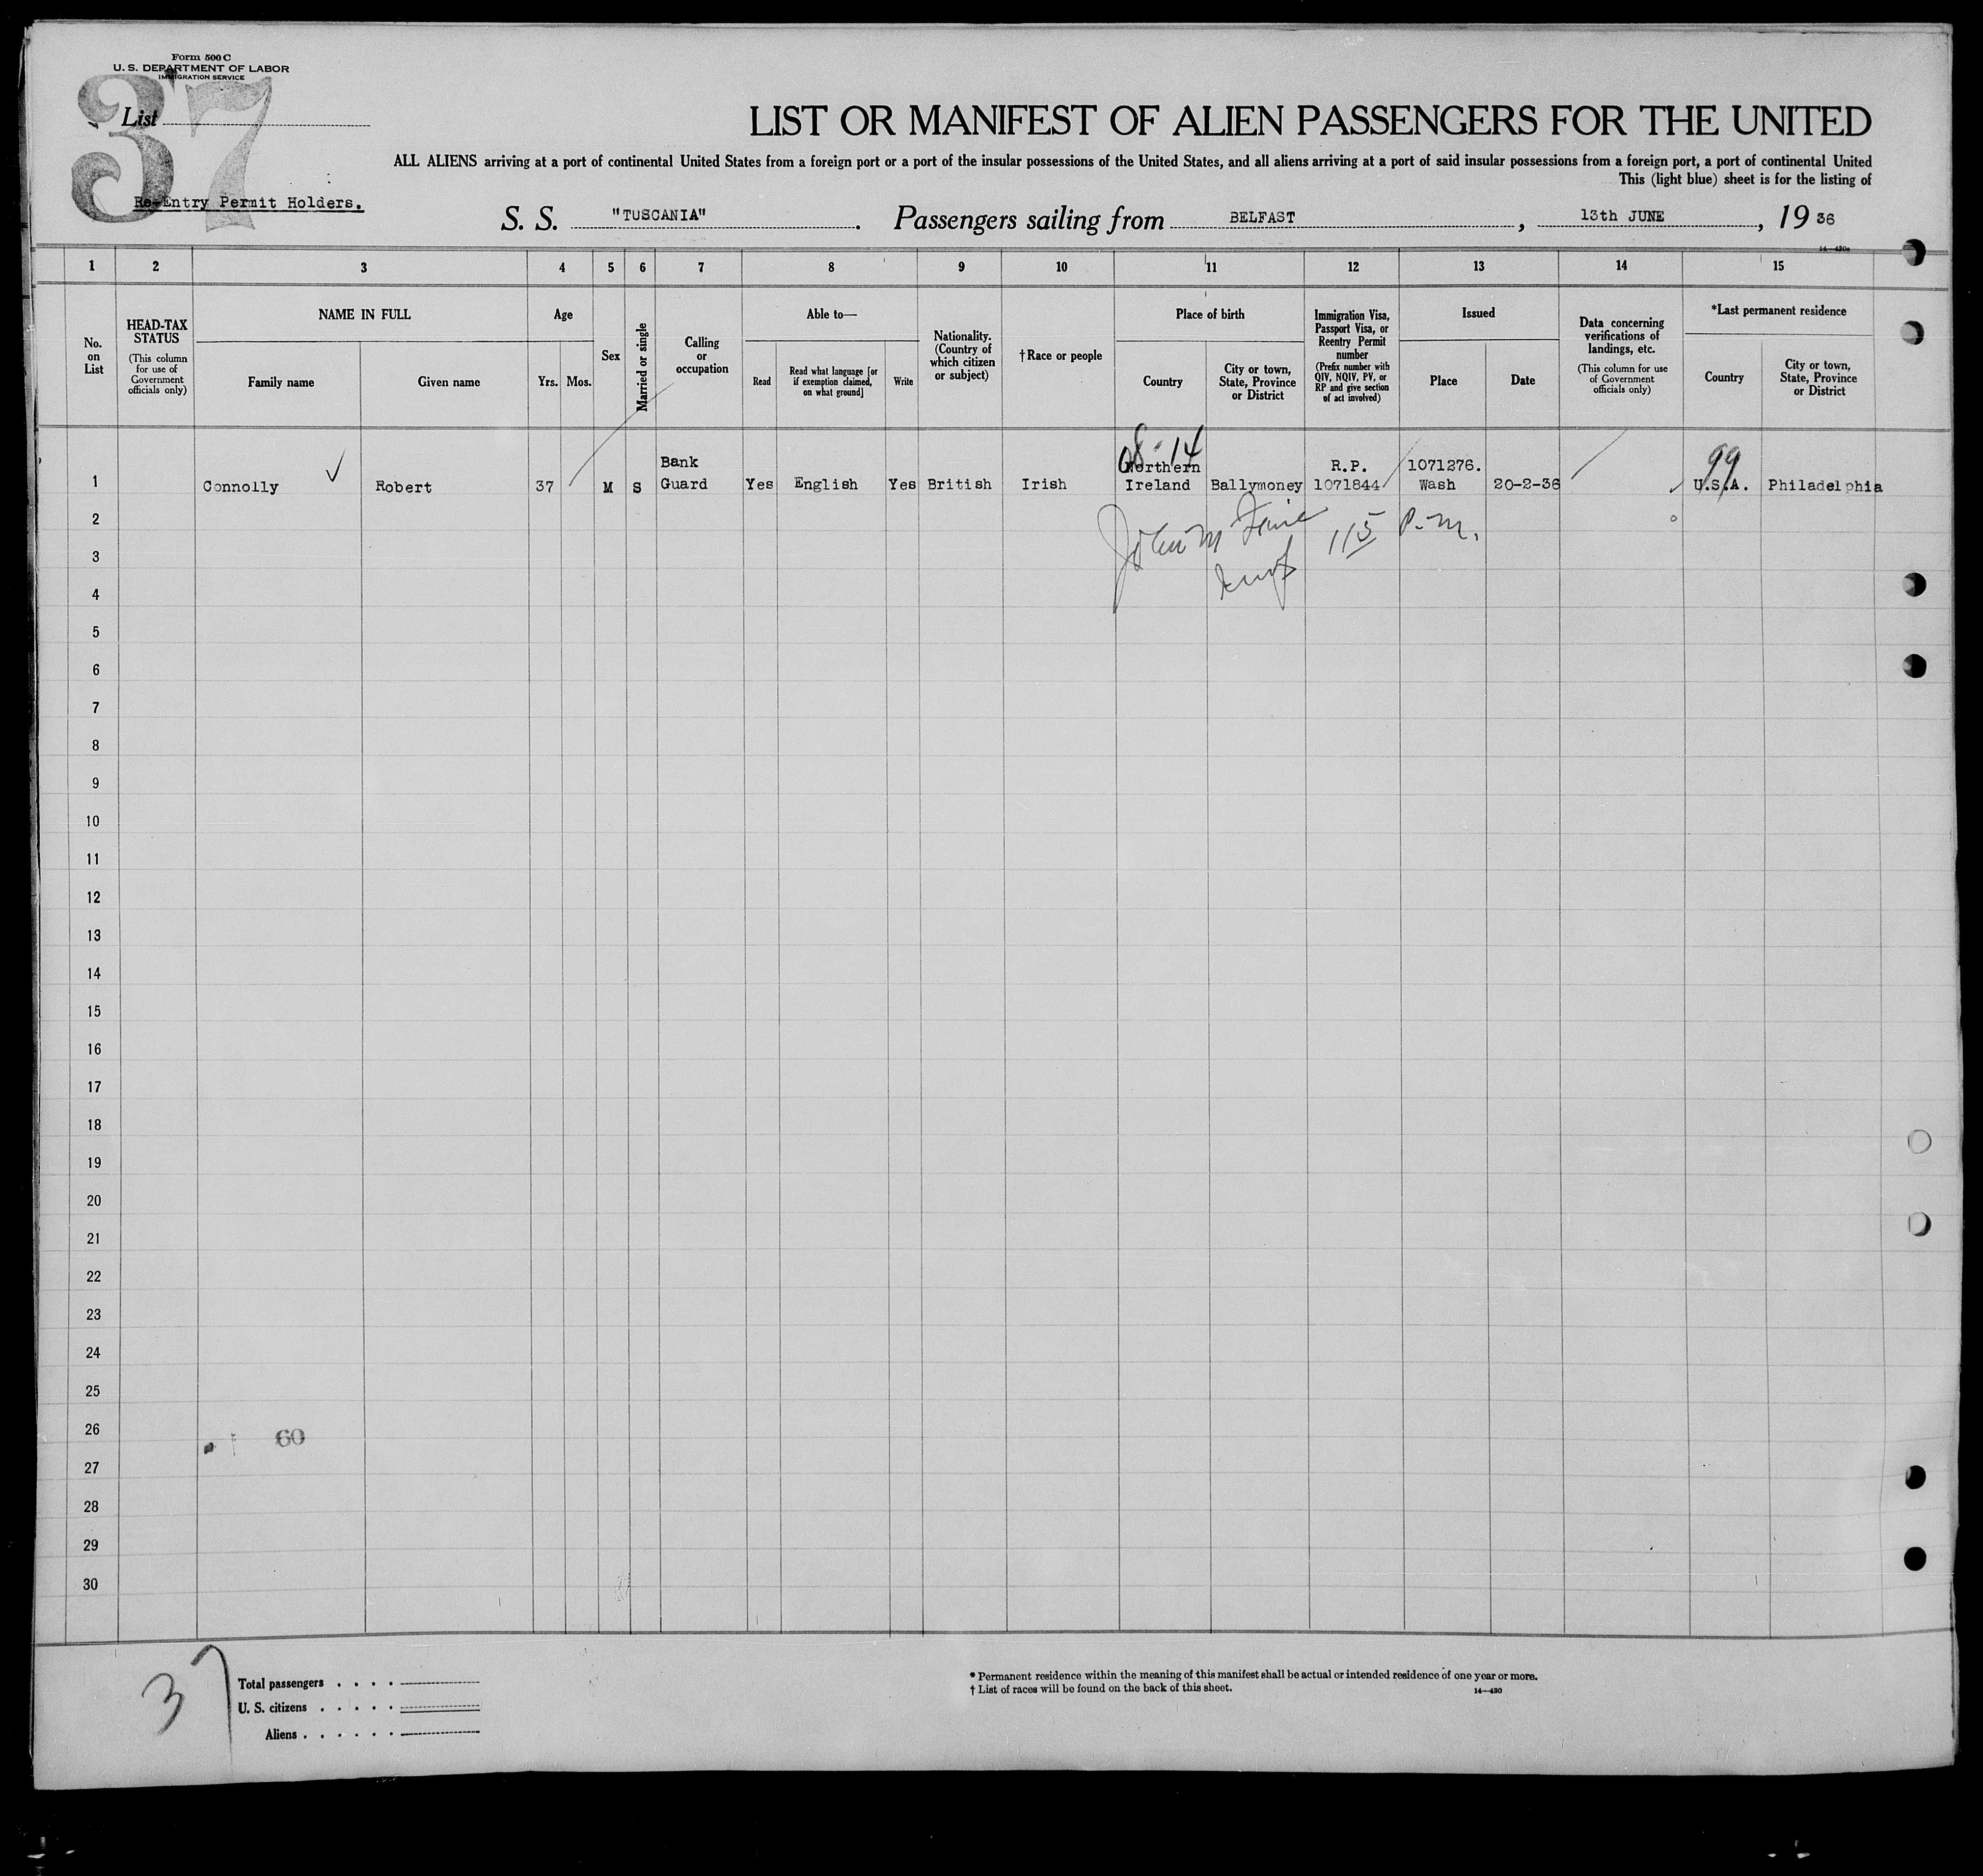 Form 500 C
U. S. DEPARTMENT OF LABOR
IMMIGRATION SERVICE
37
List
LIST OR MANIFEST OF ALIEN PASSENGERS FOR THE UNITED
ALL ALIENS arriving at a port of continental United States from a foreign port or a port of the insular possessions of the United States, and all aliens arriving at a port of said insular possessions from a foreign port, a port of continental United
This (light blue) sheet is for the listing of
Re-Entry Permit Holders.
S. S. "TUSCANIA". Passengers sailing from BELFAST, 13th JUNE, 1936
14—430c
1 2 3 4 5 6 7 8 9 10 11 12 13 14 15
No. on List
HEAD-TAX STATUS
(This column for use of Government officials only)
NAME IN FULL
Family name
Given name
Age
Yrs.
Mos.
Sex
Married or single
Calling or occupation
Able to—
Read
Read what language [or if exemption claimed, on what ground]
Write
Nationality. (Country of which citizen or subject)
†Race or people
Place of birth
Country
City or town, State, Province or District
Immigration Visa, Passport Visa, or Reentry Permit number
(Prefix number with QIV, NQIV, PV, or RP and give section of act involved)
Issued
Place
Date
Data concerning verifications of landings, etc.
(This column for use of Government officials only)
*Last permanent residence
Country
City or town, State, Province or District
08-14
99
1 Connolly Robert 37 M S Bank Guard Yes English Yes British Irish Northern Ireland Ballymoney R.P. 1071844 1071276. Wash 20-2-36 U.S.A. Philadelphia
John M
115 P.M.
2
3
4
5
6
7
8
9
10
11
12
13
14
15
16
17
18
19
20
21
22
23
24
25
26
60
27
28
29
30
37
Total passengers
U. S. citizens
Aliens
* Permanent residence within the meaning of this manifest shall be actual or intended residence of one year or more.
† List of races will be found on the back of this sheet.
14—430